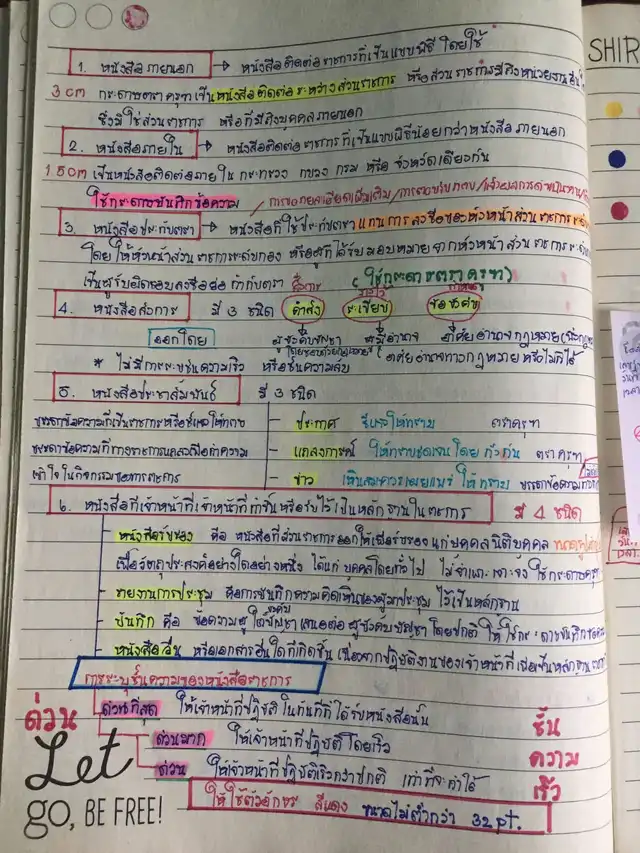 1. หนังสือภายนอก → หนังสือติดต่อราชการที่เป็นแบบพิธี โดยใช้
3 cm กระดาษตราครุฑ เป็นหนังสือติดต่อระหว่างส่วนราชการ หรือส่วนราชการมีถึงหน่วยงานอื่น
ซึ่งมิใช่ส่วนราชการ หรือที่มีถึงบุคคลภายนอก
2. หนังสือภายใน → หนังสือติดต่อราชการที่เป็นแบบพิธีน้อยกว่าหนังสือภายนอก
1.5 cm เป็นหนังสือติดต่อภายใน กระทรวง ทบวง กรม หรือ จังหวัดเดียวกัน
ใช้กระดาษบันทึกข้อความ
3. หนังสือประทับตรา → หนังสือที่ใช้ประทับตรา แทนการลงชื่อของหัวหน้าส่วนราชการ
โดย ให้หัวหน้าส่วนราชการระดับกอง หรือผู้ที่ได้รับมอบหมายจากหัวหน้าส่วนราชการระดับ
เป็นผู้รับผิดชอบลงชื่อย่อ กำกับตรา (ใช้กระดาษตราครุฑ)
4. หนังสือสั่งการ มี 3 ชนิด คำสั่ง ระเบียบ ข้อบังคับ
ออกโดย ผู้บังคับบัญชา
* ไม่มีการระบุชั้นความเร็ว หรือชั้นความลับ
5. หนังสือประชาสัมพันธ์ มี 3 ชนิด
ประกาศ ชี้แจงให้ทราบ ตราครุฑ
แถลงการณ์ ตราครุฑ
ข่าว เห็นสมควรเผยแพร่ ให้ทราบ
เข้าใจในกิจกรรมของทางราชการ
6. หนังสือที่เจ้าหน้าที่เจ้าหน้าที่ทำขึ้นหรือรับไว้เป็นหลักฐานในราชการ มี 4 ชนิด
หนังสือรับรอง คือ หนังสือที่ส่วนราชการออกให้เพื่อรับรอง แก่บุคคล นิติบุคคล
เพื่อวัตถุประสงค์อย่างใดอย่างหนึ่ง ได้แก่ บุคคลโดยทั่วไป ไม่จำเพาะเจาะจง ใช้กระดาษครุฑ
รายงานการประชุม คือการบันทึกความคิดเห็นของผู้มาประชุม ไว้เป็นหลักฐาน
บันทึก คือ ข้อความผู้ใต้บังคับบัญชา เสนอต่อ ผู้บังคับบัญชา โดยปกติ ให้ใช้กระดาษบันทึกข้อความ
หนังสืออื่น หรือเอกสารอื่นใดที่เกิดขึ้น เนื่องจากปฏิบัติงานของเจ้าหน้าที่ เพื่อเป็นหลักฐาน
การระบุชั้นความของหนังสือราชการ
ด่วน
ด่วนที่สุด ให้เจ้าหน้าที่ปฏิบัติ ในทันทีที่ได้รับหนังสือนั้น
ด่วนมาก ให้เจ้าหน้าที่ปฏิบัติ โดยเร็ว
ด่วน ให้เจ้าหน้าที่ปฏิบัติเร็วกว่าปกติ เท่าที่จะทำได้
ชั้น
ความ
เร็ว
ให้ใช้ตัวอักษร สีแดง ขนาดไม่ต่ำกว่า 32 pt.
Let
go, BE FREE!
SHIR